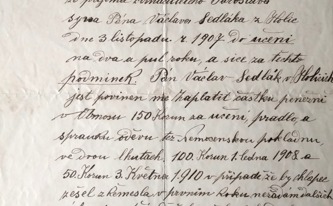 se přijímá
syna Pána Václava Sedláka z Stolic
dne 3 listopadu r. 1907 do učení
na dva a půl roku, a sice za těchto
podmínek. Pán Václav Sedlák, v
jest povinen mě zaplatit částku peněžní
v Obnosu 150 Korun za učení, prádlo, a
spravení oděvu ke Nemocenskou pokladnu
ve dvou lhutách, 100. Korun 1. ledna 1908 a
50. Korun 3. Května 1910 v případě že by chlapec
zešel z řemesla v prvním roku nežádám